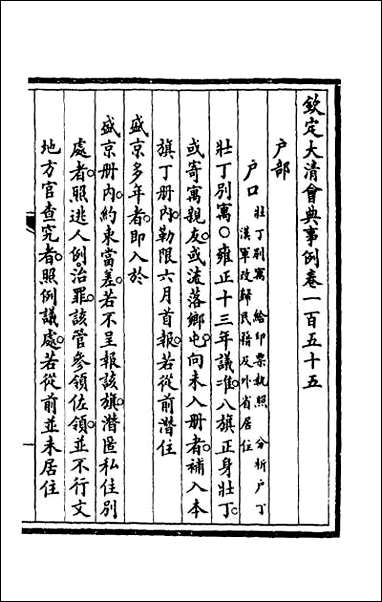 欽定大清會典事例卷一百五十五
户部
户口
壯丁別寓 給印票執照 分析户丁
漢軍改歸民籍及外省居住
壯丁別寓○雍正十三年議准八旗正身壯丁
或寄寓親友或流落鄉屯向未入册者補入本
旗丁册内勒限六月首報若從前潛住
盛京多年者即入於
盛京册内約束當差若不呈報該旗潛匿私住別
處者照逃人例治罪該管參領佐領並不行文
地方官查究者照例議處若從前並未居住